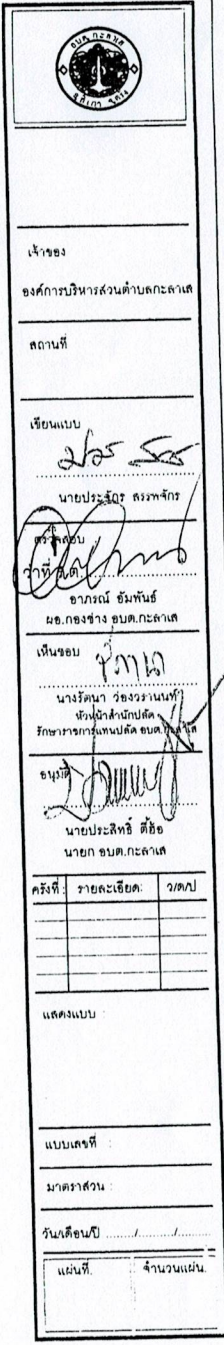 อบต.กะลาเส
อ.สิเกา จ.ตรัง
เจ้าของ
องค์การบริหารส่วนตำบลกะลาเส
สถานที่
เขียนแบบ
นายประจักร สรรพจักร
ตรวจสอบ
ว่าที่ ร.ต.
อาภรณ์ อัมพันธ์
ผอ.กองช่าง อบต.กะลาเส
เห็นชอบ
รัตนา
นางรัตนา ว่องวรานนท์
หัวหน้าสำนักปลัด
รักษาราชการแทนปลัด อบต.กะลาเส
อนุมัติ
นายประสิทธิ์ ตี้ฮ้อ
นายก อบต.กะลาเส
ครั้งที่ : รายละเอียด: ว/ด/ป
แสดงแบบ :
แบบเลขที่ :
มาตราส่วน :
วัน/เดือน/ปี ......../........./........
แผ่นที่. จำนวนแผ่น.